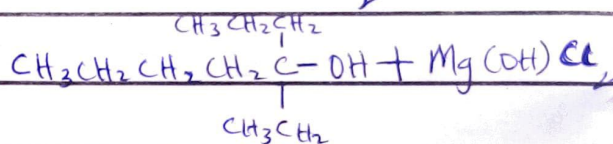 CH₃CH₂CH₂
CH₃CH₂CH₂CH₂C-OH + Mg(OH)Cl,
CH₃CH₂